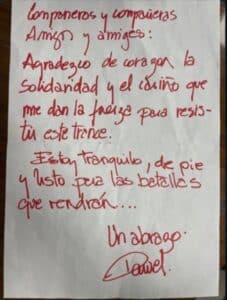 Compañeros y compañeras
Amigos y amigas:
Agradezco de corazon la
solidaridad y el cariño que
me dan la fuerza para resis-
tir este trance.
Estoy tranquilo, de pie
y listo para las batallas
que vendrán...
Un abrazo.
Daniel.